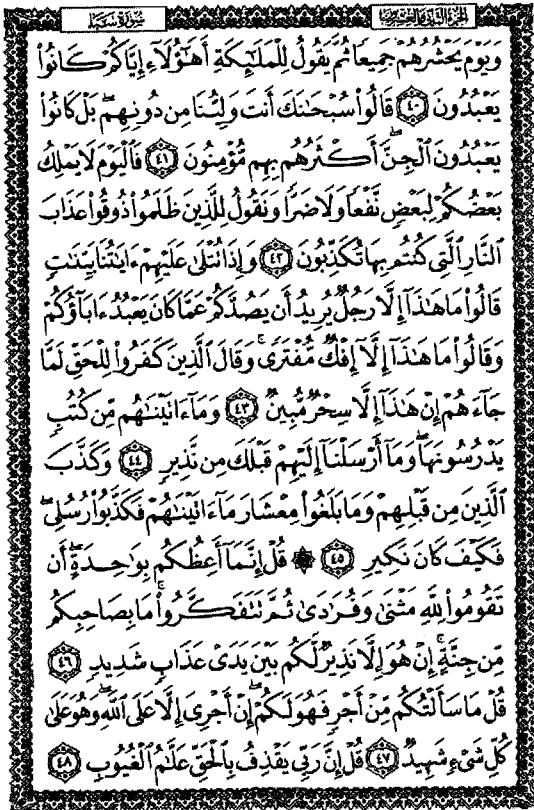 الجزء الثاني والعشرون سورة سبإ
وَيَوْمَ يَحْشُرُهُمْ جَمِيعًا ثُمَّ يَقُولُ لِلْمَلَٰٓئِكَةِ أَهَٰٓؤُلَآءِ إِيَّاكُمْ كَانُوا۟
يَعْبُدُونَ ٤٠ قَالُوا۟ سُبْحَٰنَكَ أَنتَ وَلِيُّنَا مِن دُونِهِم ۖ بَلْ كَانُوا۟
يَعْبُدُونَ ٱلْجِنَّ ۖ أَكْثَرُهُم بِهِم مُّؤْمِنُونَ ٤١ فَٱلْيَوْمَ لَا يَمْلِكُ
بَعْضُكُمْ لِبَعْضٍ نَّفْعًا وَلَا ضَرًّا وَنَقُولُ لِلَّذِينَ ظَلَمُوا۟ ذُوقُوا۟ عَذَابَ
ٱلنَّارِ ٱلَّتِى كُنتُم بِهَا تُكَذِّبُونَ ٤٢ وَإِذَا تُتْلَىٰ عَلَيْهِمْ ءَايَٰتُنَا بَيِّنَٰتٍ
قَالُوا۟ مَا هَٰذَآ إِلَّا رَجُلٌ يُرِيدُ أَن يَصُدَّكُمْ عَمَّا كَانَ يَعْبُدُ ءَابَآؤُكُمْ
وَقَالُوا۟ مَا هَٰذَآ إِلَّآ إِفْكٌ مُّفْتَرًى ۚ وَقَالَ ٱلَّذِينَ كَفَرُوا۟ لِلْحَقِّ لَمَّا
جَآءَهُمْ إِنْ هَٰذَآ إِلَّا سِحْرٌ مُّبِينٌ ٤٣ وَمَآ ءَاتَيْنَٰهُم مِّن كُتُبٍ
يَدْرُسُونَهَا ۖ وَمَآ أَرْسَلْنَآ إِلَيْهِمْ قَبْلَكَ مِن نَّذِيرٍ ٤٤ وَكَذَّبَ
ٱلَّذِينَ مِن قَبْلِهِمْ وَمَا بَلَغُوا۟ مِعْشَارَ مَآ ءَاتَيْنَٰهُمْ فَكَذَّبُوا۟ رُسُلِى ۖ
فَكَيْفَ كَانَ نَكِيرِ ٤٥ ۞ قُلْ إِنَّمَآ أَعِظُكُم بِوَٰحِدَةٍ ۖ أَن
تَقُومُوا۟ لِلَّهِ مَثْنَىٰ وَفُرَٰدَىٰ ثُمَّ تَتَفَكَّرُوا۟ ۚ مَا بِصَاحِبِكُم
مِّن جِنَّةٍ ۚ إِنْ هُوَ إِلَّا نَذِيرٌ لَّكُم بَيْنَ يَدَىْ عَذَابٍ شَدِيدٍ ٤٦
قُلْ مَا سَأَلْتُكُم مِّنْ أَجْرٍ فَهُوَ لَكُمْ ۖ إِنْ أَجْرِىَ إِلَّا عَلَى ٱللَّهِ ۖ وَهُوَ عَلَىٰ
كُلِّ شَىْءٍ شَهِيدٌ ٤٧ قُلْ إِنَّ رَبِّى يَقْذِفُ بِٱلْحَقِّ عَلَّٰمُ ٱلْغُيُوبِ ٤٨